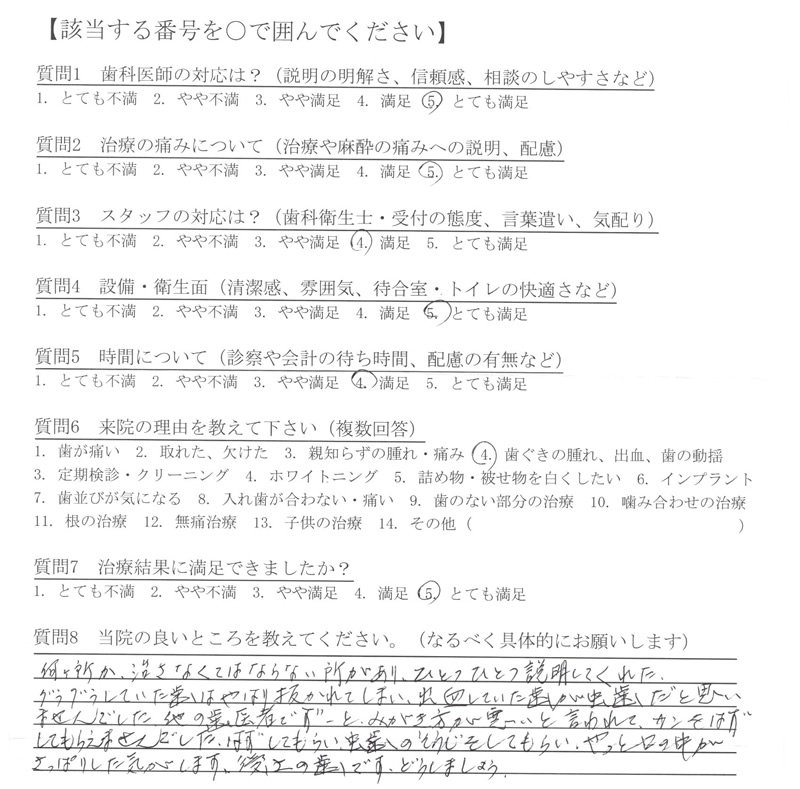 【該当する番号を○で囲んでください】
質問1 歯科医師の対応は？（説明の明解さ、信頼感、相談のしやすさなど）
1. とても不満 2. やや不満 3. やや満足 4. 満足 5. とても満足
質問2 治療の痛みについて（治療や麻酔の痛みへの説明、配慮）
1. とても不満 2. やや不満 3. やや満足 4. 満足 5. とても満足
質問3 スタッフの対応は？（歯科衛生士・受付の態度、言葉遣い、気配り）
1. とても不満 2. やや不満 3. やや満足 4. 満足 5. とても満足
質問4 設備・衛生面（清潔感、雰囲気、待合室・トイレの快適さなど）
1. とても不満 2. やや不満 3. やや満足 4. 満足 5. とても満足
質問5 時間について（診察や会計の待ち時間、配慮の有無など）
1. とても不満 2. やや不満 3. やや満足 4. 満足 5. とても満足
質問6 来院の理由を教えて下さい（複数回答）
1. 歯が痛い 2. 取れた、欠けた 3. 親知らずの腫れ・痛み 4. 歯ぐきの腫れ、出血、歯の動揺
3. 定期検診・クリーニング 4. ホワイトニング 5. 詰め物・被せ物を白くしたい 6. インプラント
7. 歯並びが気になる 8. 入れ歯が合わない・痛い 9. 歯のない部分の治療 10. 噛み合わせの治療
11. 根の治療 12. 無痛治療 13. 子供の治療 14. その他（ ）
質問7 治療結果に満足できましたか？
1. とても不満 2. やや不満 3. やや満足 4. 満足 5. とても満足
質問8 当院の良いところを教えてください。（なるべく具体的にお願いします）
何ヶ所か、治さなくてはならない所があり、ひとつひとつ説明してくれた。
グラグラしていた歯はやはり抜かれてしまい、出血していた歯が虫歯だと思い
ませんでした。他の歯医者でずーと、みがき方が悪いと言われて、カンをはず
してもらえませんでした。はずしてもらい虫歯のそうじをしてもらい、やっと口の中が
さっぱりした気がします。後上の歯です。どうしましょう。